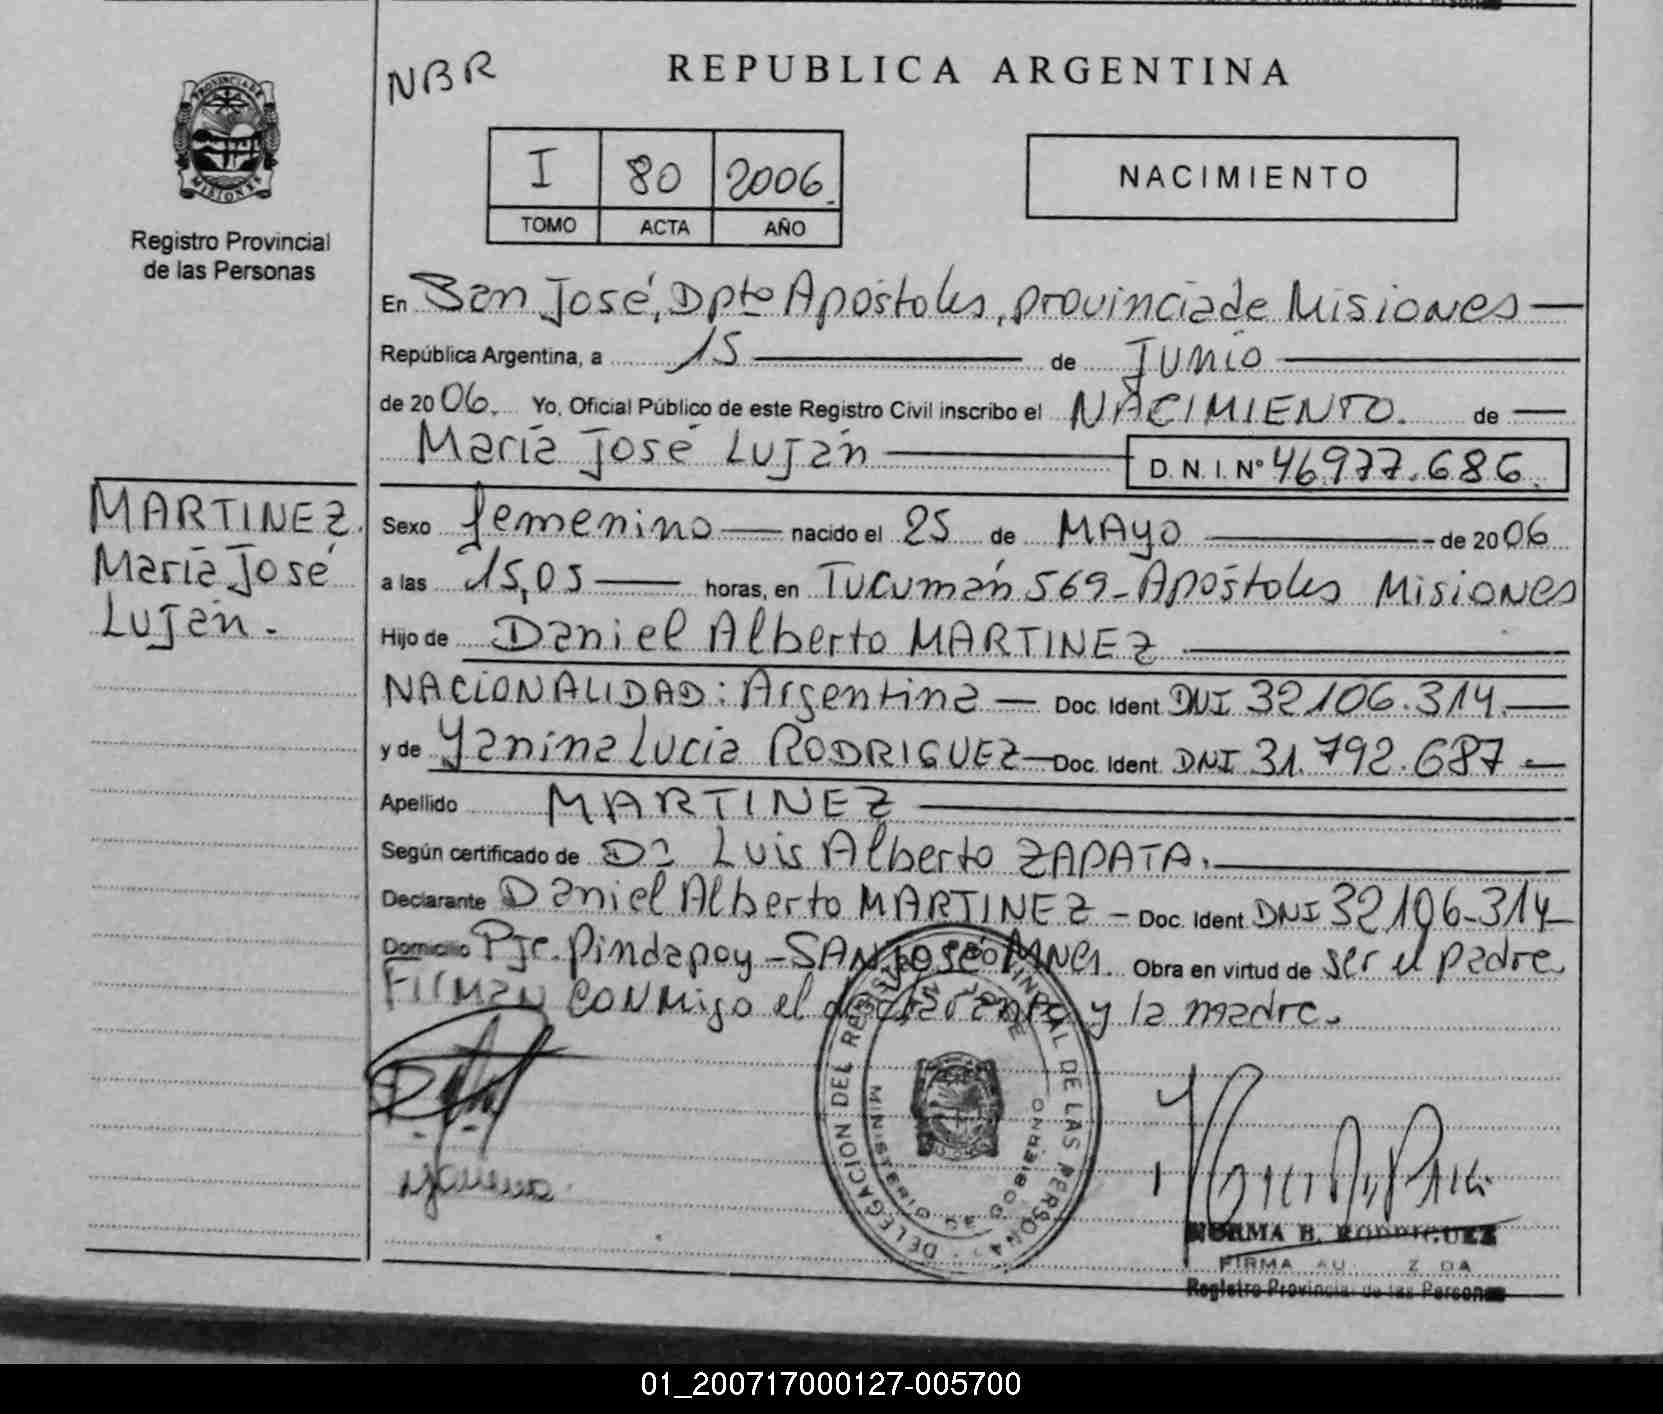 NBR
REPUBLICA ARGENTINA
PROVINCIA DE
MISIONES
Registro Provincial
de las Personas
I 80 2006.
TOMO ACTA AÑO
NACIMIENTO
En San José, Dpto Apóstoles, provincia de Misiones —
República Argentina, a 15 — de Junio —
de 2006. Yo, Oficial Público de este Registro Civil inscribo el NACIMIENTO. de —
María José Luján — D. N. I. Nº 46977.686.
MARTINEZ.
María José
Luján.-
Sexo femenino — nacido el 25 de MAYO — de 2006
a las 15,05 — horas, en Tucumán 569 - Apóstoles Misiones
Hijo de Daniel Alberto MARTINEZ —
NACIONALIDAD: Argentina — Doc. Ident. DNI 32106.314. —
y de Yanina Lucia RODRIGUEZ — Doc. Ident. DNI 31.792.687 —
Apellido MARTINEZ —
Según certificado de Dr Luis Alberto ZAPATA. —
Declarante Daniel Alberto MARTINEZ - Doc. Ident. DNI 32106-314-
Domicilio Pje. Pindapoy - SAN José Mnes. Obra en virtud de ser el padre.
Firman conmigo el declarante y la madre.-
DELEGACION DEL REGISTRO PROVINCIAL DE LAS PERSONAS
SAN JOSE
MINISTERIO DE GOBIERNO
NORMA B. RODRIGUEZ
FIRMA
Registro Provincial de las Personas
01_200717000127-005700